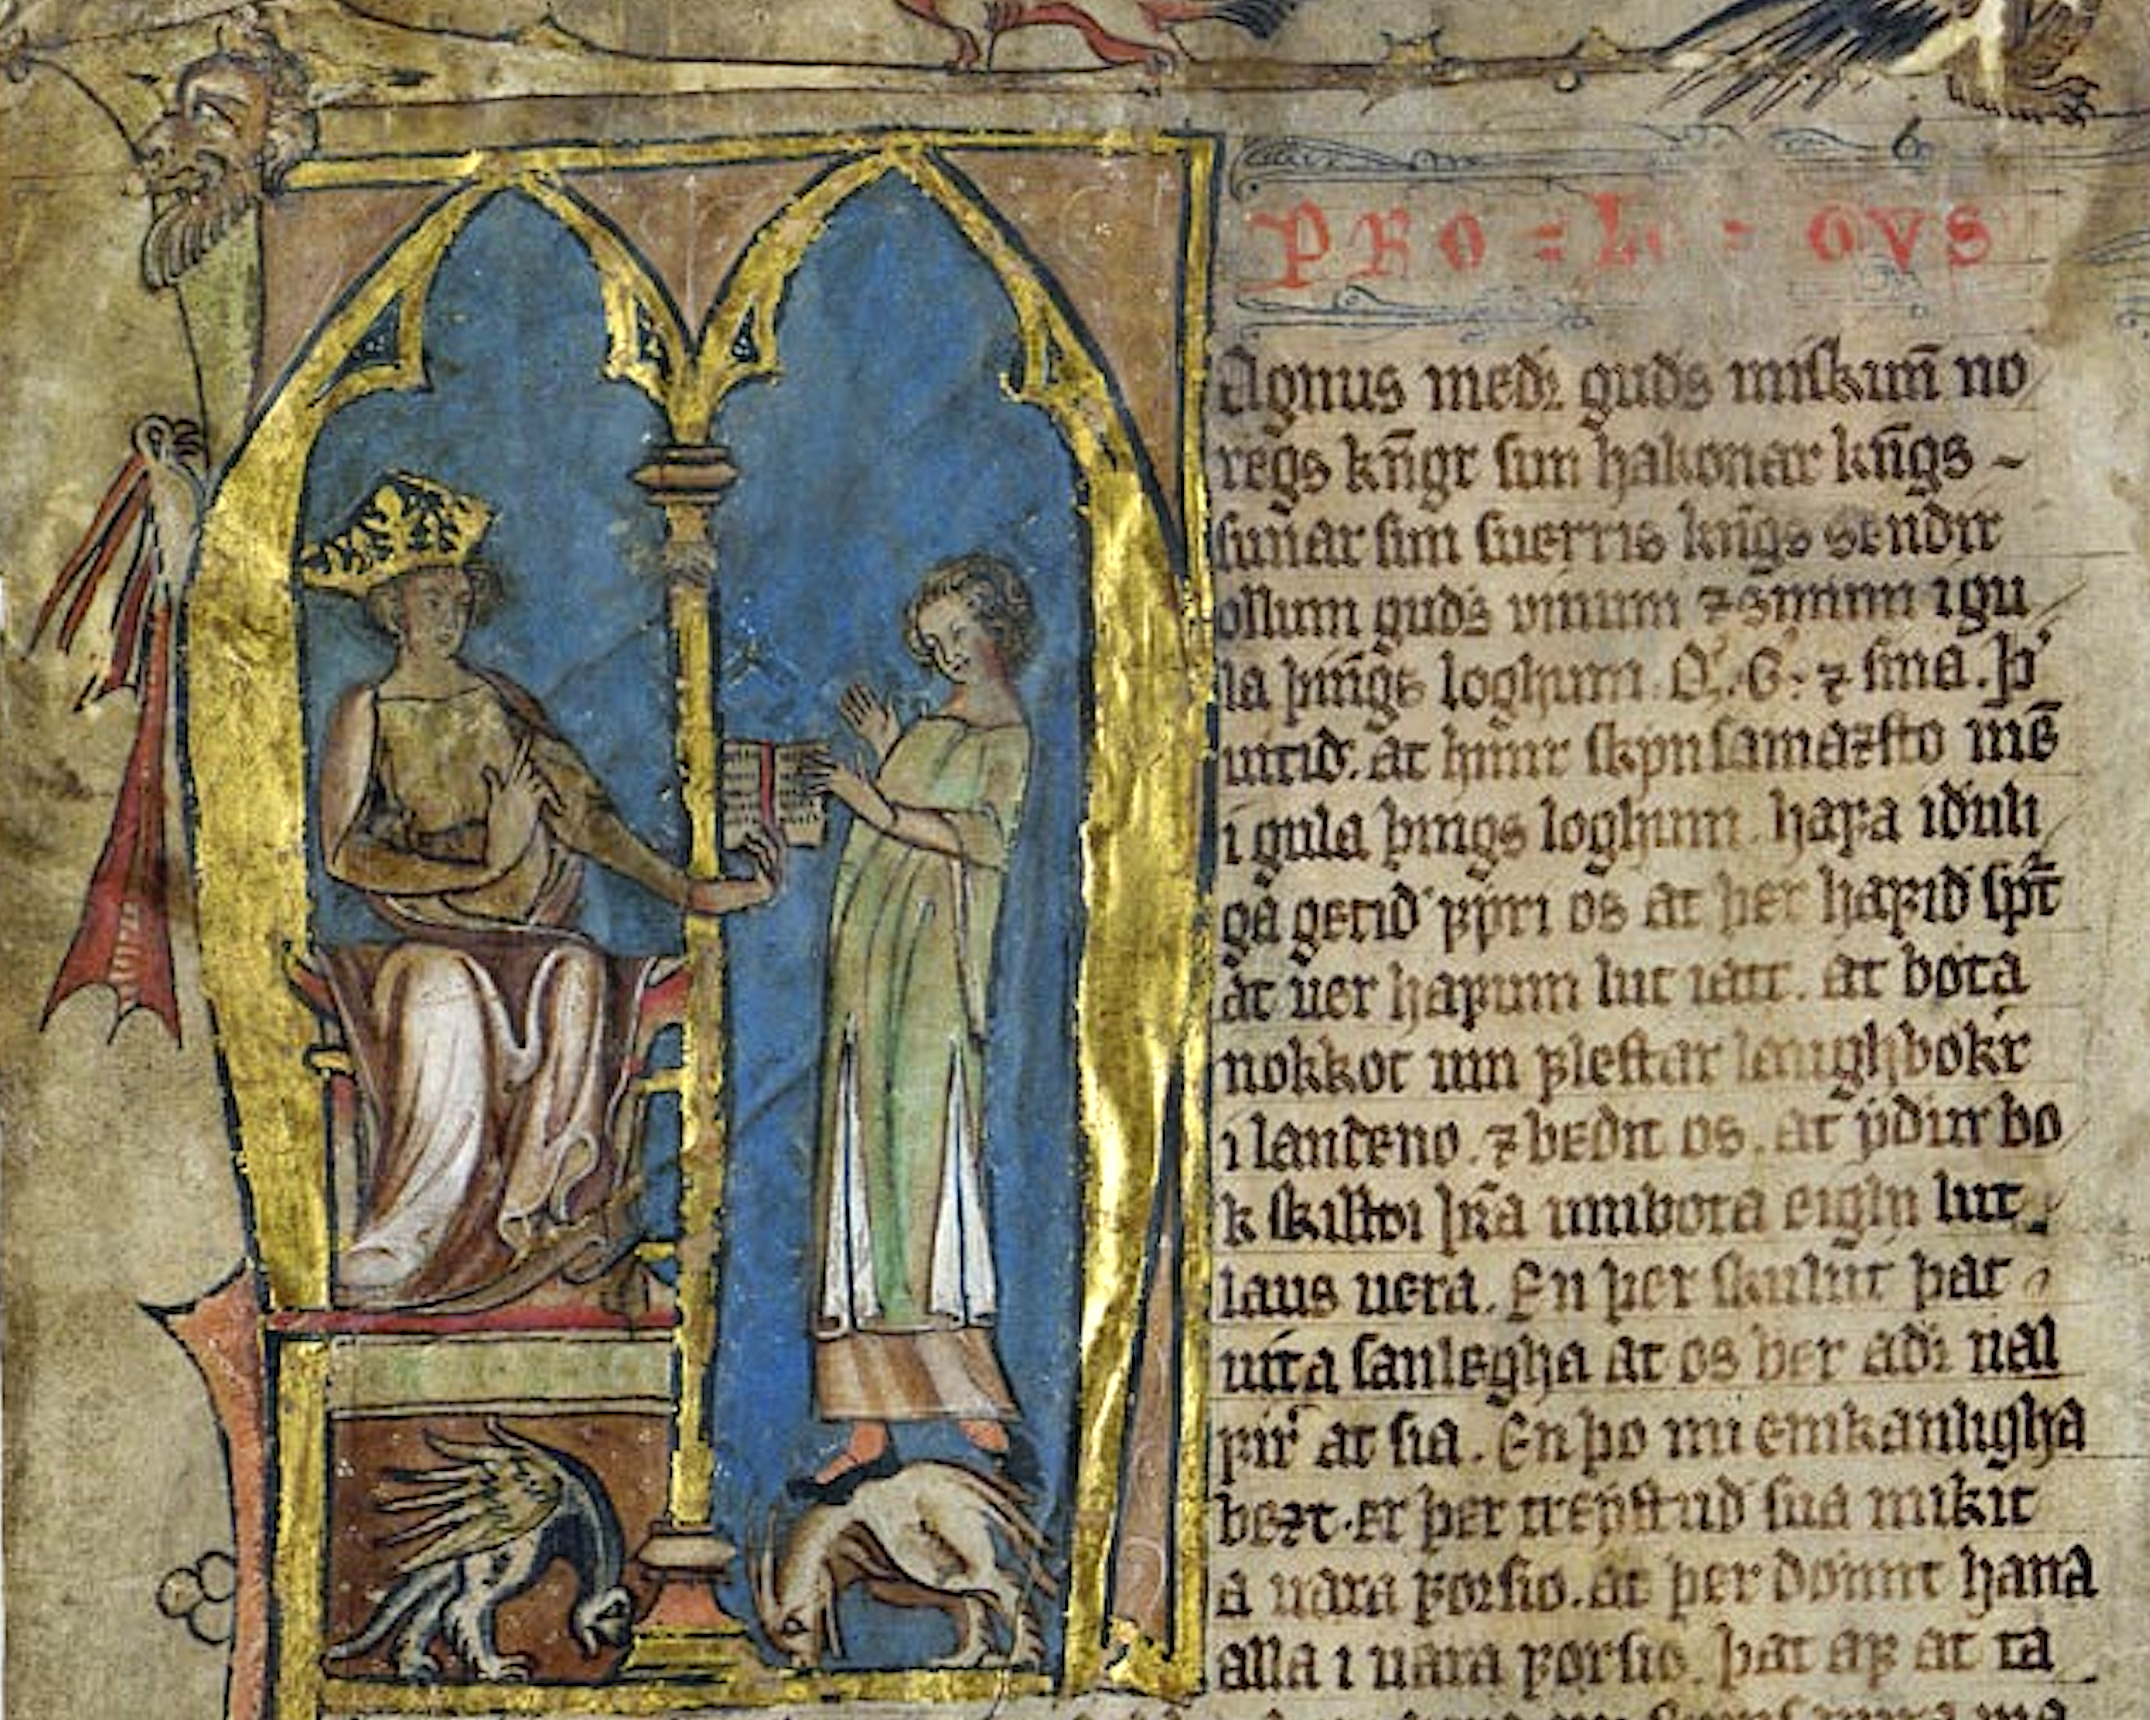 6
PRO = L - OVS
Agnus medr guds miskun̄ no
regs kn̄gr sun hakonar kn̄gs -
sunar sun suerris kn̄gs sendir
ollum guds uinum ⁊ sinum i gu
la þings loghum. Q. G. ⁊ sina. þr
uitid. at hinir skynsamazsto mē
i gula þings loghum. hafa iduli
ga getid fyri os at þer hafid spt
at uer hafum lut i att. at bota
nokkot um flestar laughbokr
i landeno. ⁊ bedit os. at ydur bo
k skilldi þra umbota eighi lut
laus uera. En þer skulut þat
uita sanlegha at os ber adi
fir at sia. En þo einkanligha
bezt. er þer treystid sua mikit
a uara forsio. at þer domit hana
alla i uara forsio. þat af at ta